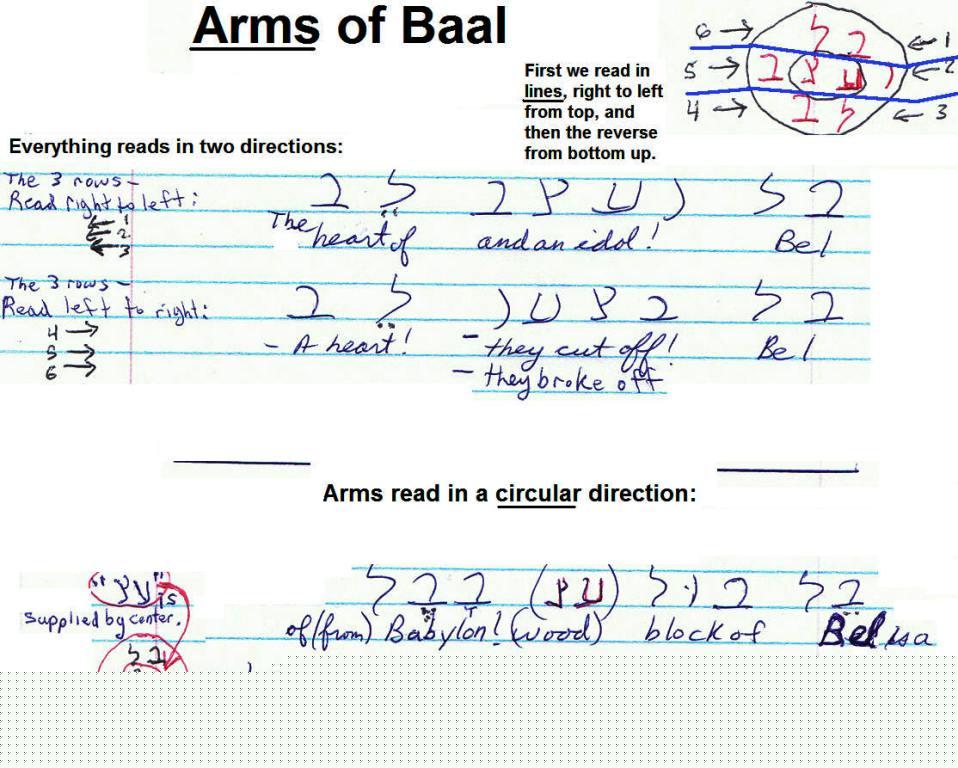 Arms of Baal
6 → ← 1
5 → ← 2
4 → ← 3
First we read in
lines, right to left
from top, and
then the reverse
from bottom up.
Everything reads in two directions:
The 3 rows-
Read right to left:
← 1
← 2
← 3
The heart of and an idol! Bel
The 3 rows-
Read left to right:
4 →
5 →
6 →
- A heart! - they cut off! Bel
- they broke off
Arms read in a circular direction:
is
supplied by center.
of (from) Babylon! (wood) block of Bel is a